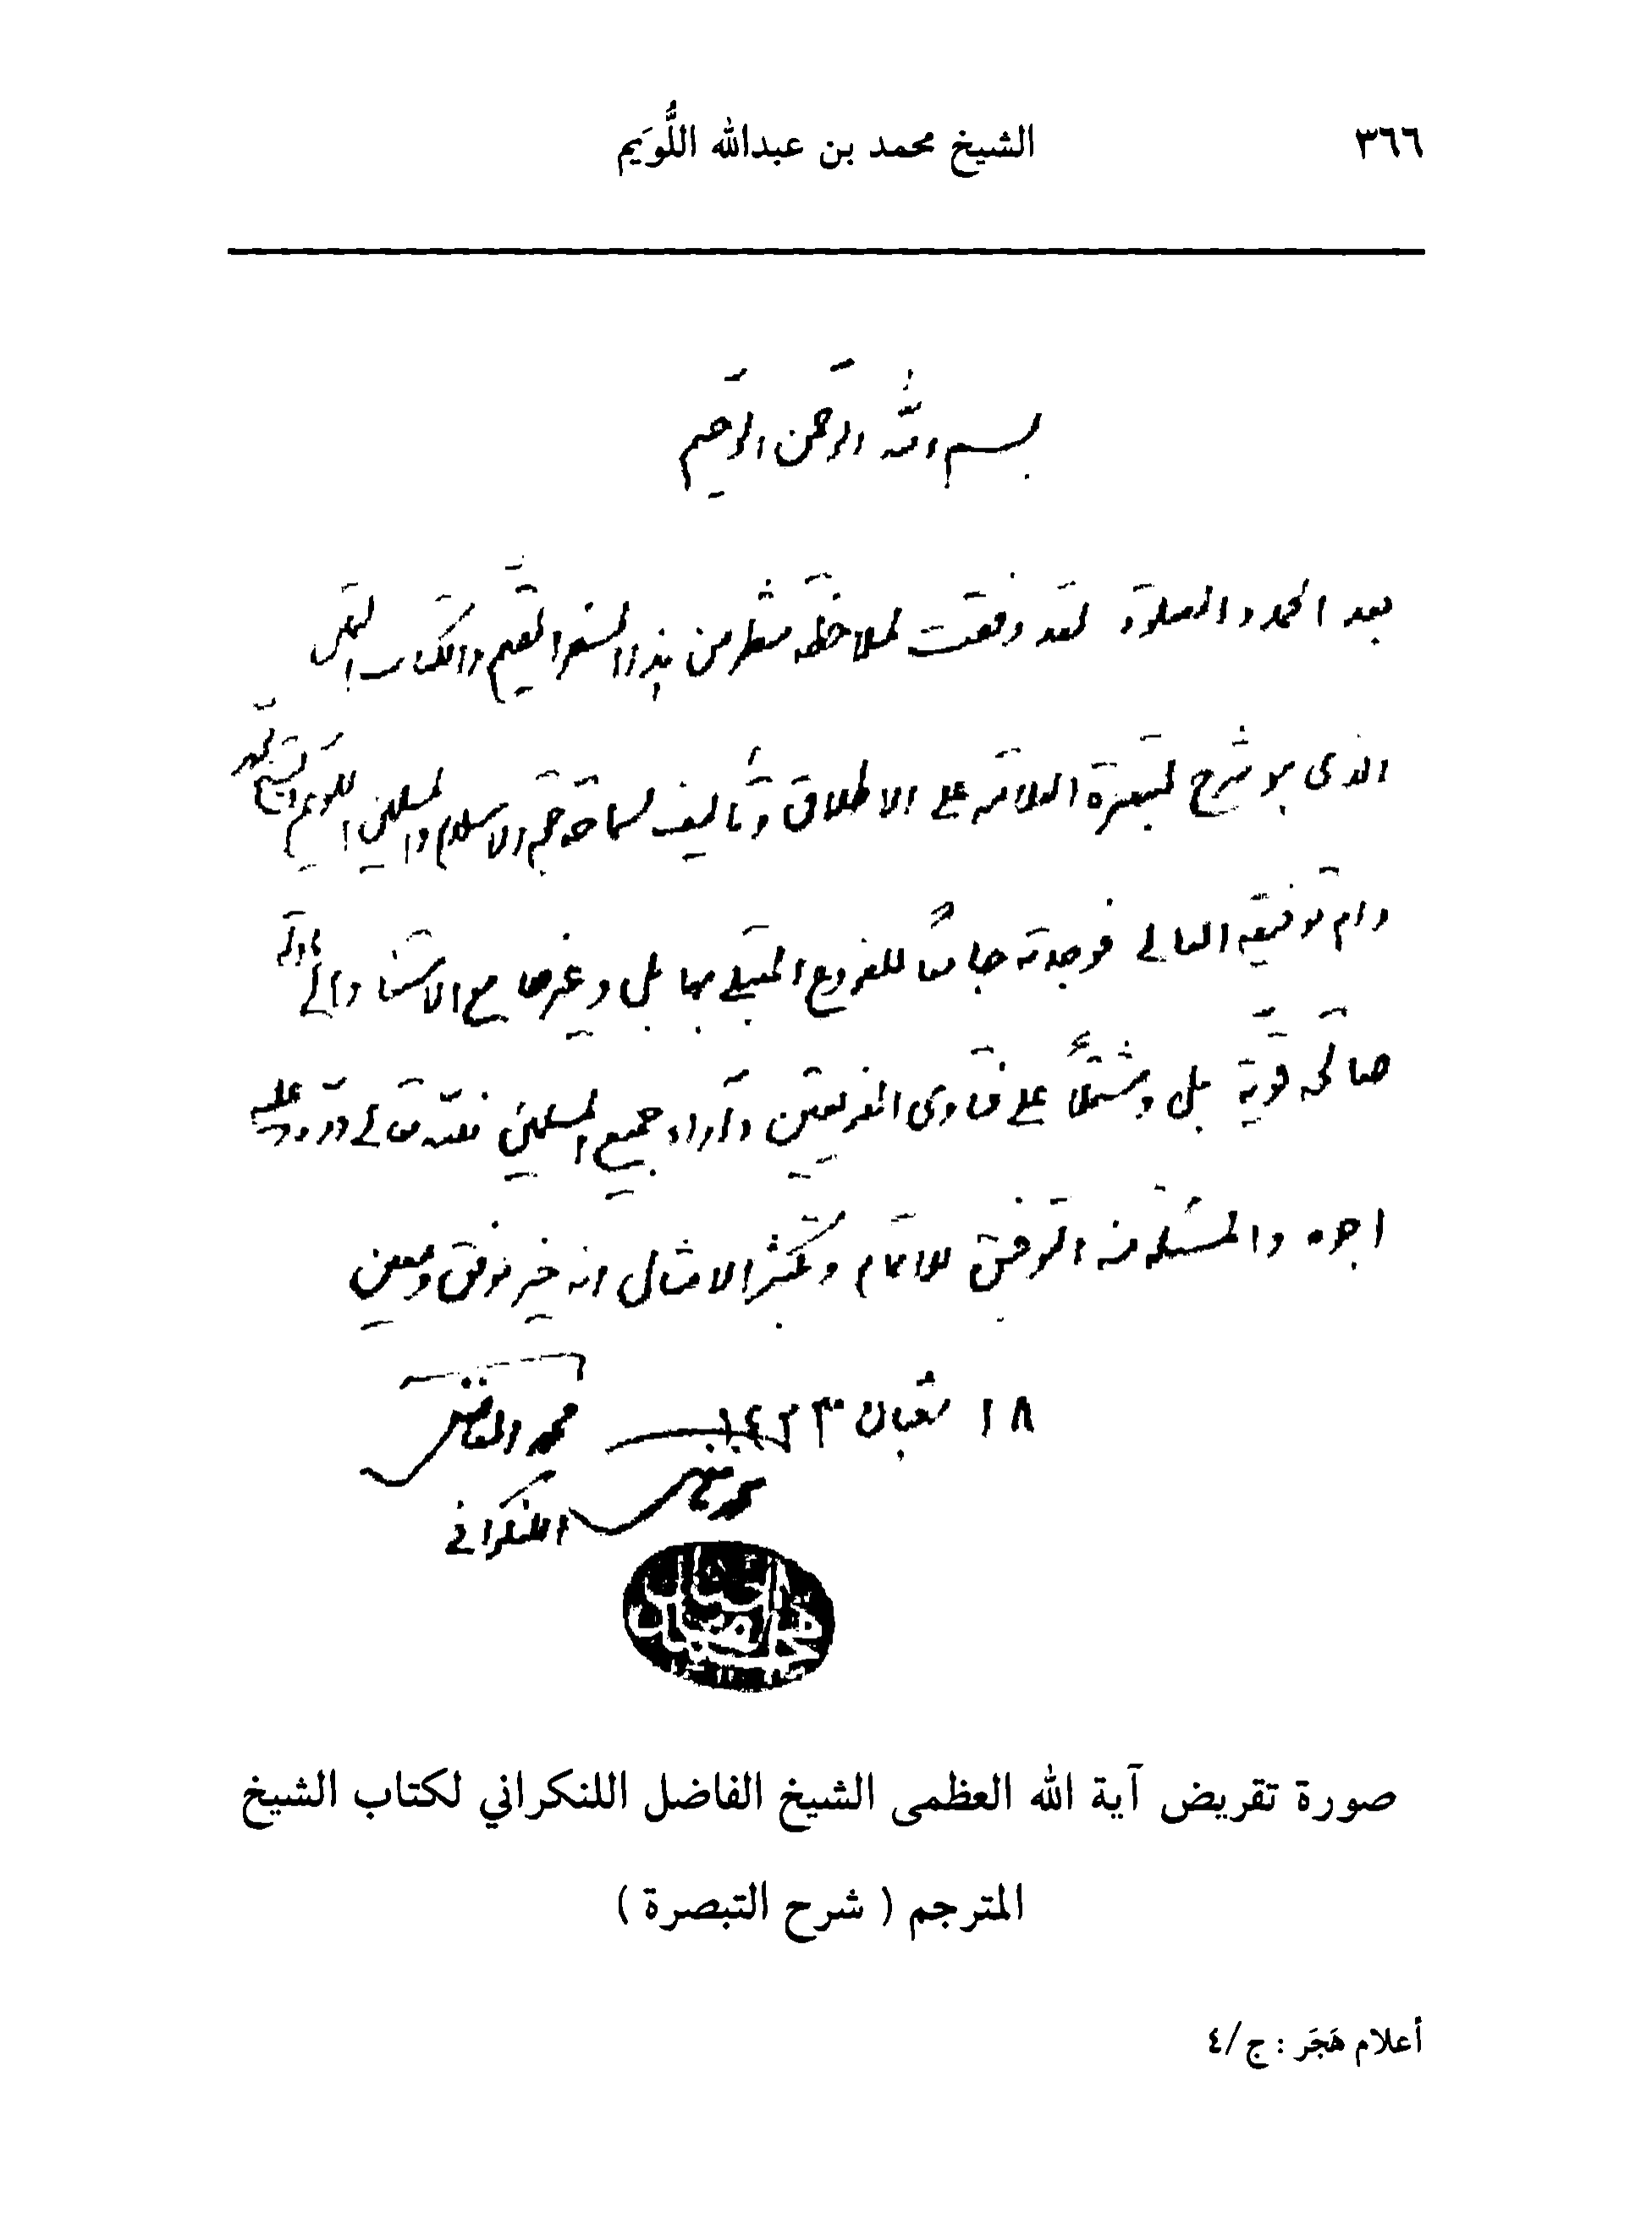 ٣٦٦
الشيخ محمد بن عبدالله اللُّوَيم
بسم الله الرحمن الرحيم
بعد الحمد والصلوة لقد وفقت لملاحظة شطر من هذا السفر القيم والكتاب
الذى هو شرح لتبصرة العلامة على الاطلاق وتأليف لسماحة حجة الاسلام والمسلمين اللويم الشيخ محمد
دام توفيقه العالى فوجدته جامعاً للفروع المبتلى بها بل وغيرها مع الاستناد الى ادلة
صالحة قوية بل ومشتملاً على فتاوى الفريقين وآراء جميع المسلمين فلله تعالى دره وعليه
اجره والمسئلة منه التوفيق للاتمام وتكثير الامثال انه خير موفق ومعين
١٨ شعبان ١٤٢٣
محمد الفاضل
اللنكرانى
صورة تقريض آية الله العظمى الشيخ الفاضل اللنكراني لكتاب الشيخ
المترجم ( شرح التبصرة )
أعلام هَجَر : ج/٤